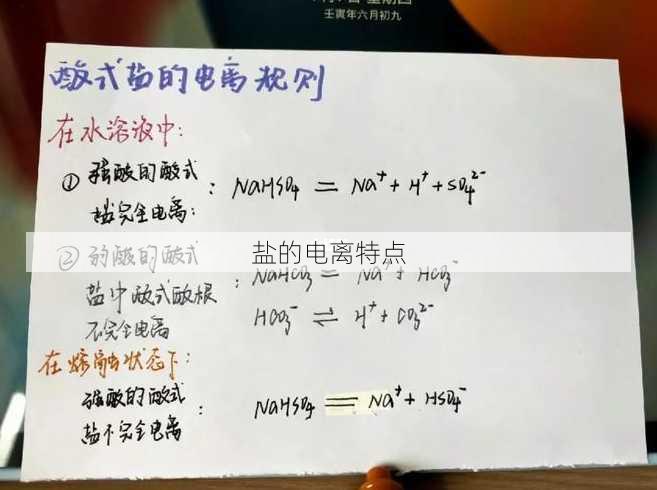 壬寅年六月初九
酸式盐的电离规则
在水溶液中：
①强酸的酸式
盐完全电离：
： NaHSO₄ = Na⁺ + H⁺ + SO₄²⁻
②弱酸的酸式
盐的电离特点
盐中酸式酸根
不完全电离
： NaHCO₃ = Na⁺ + HCO₃⁻
HCO₃⁻ ⇌ H⁺ + CO₃²⁻
在熔融状态下：
强酸的酸式
盐不完全电离
： NaHSO₄ = Na⁺ + HSO₄⁻